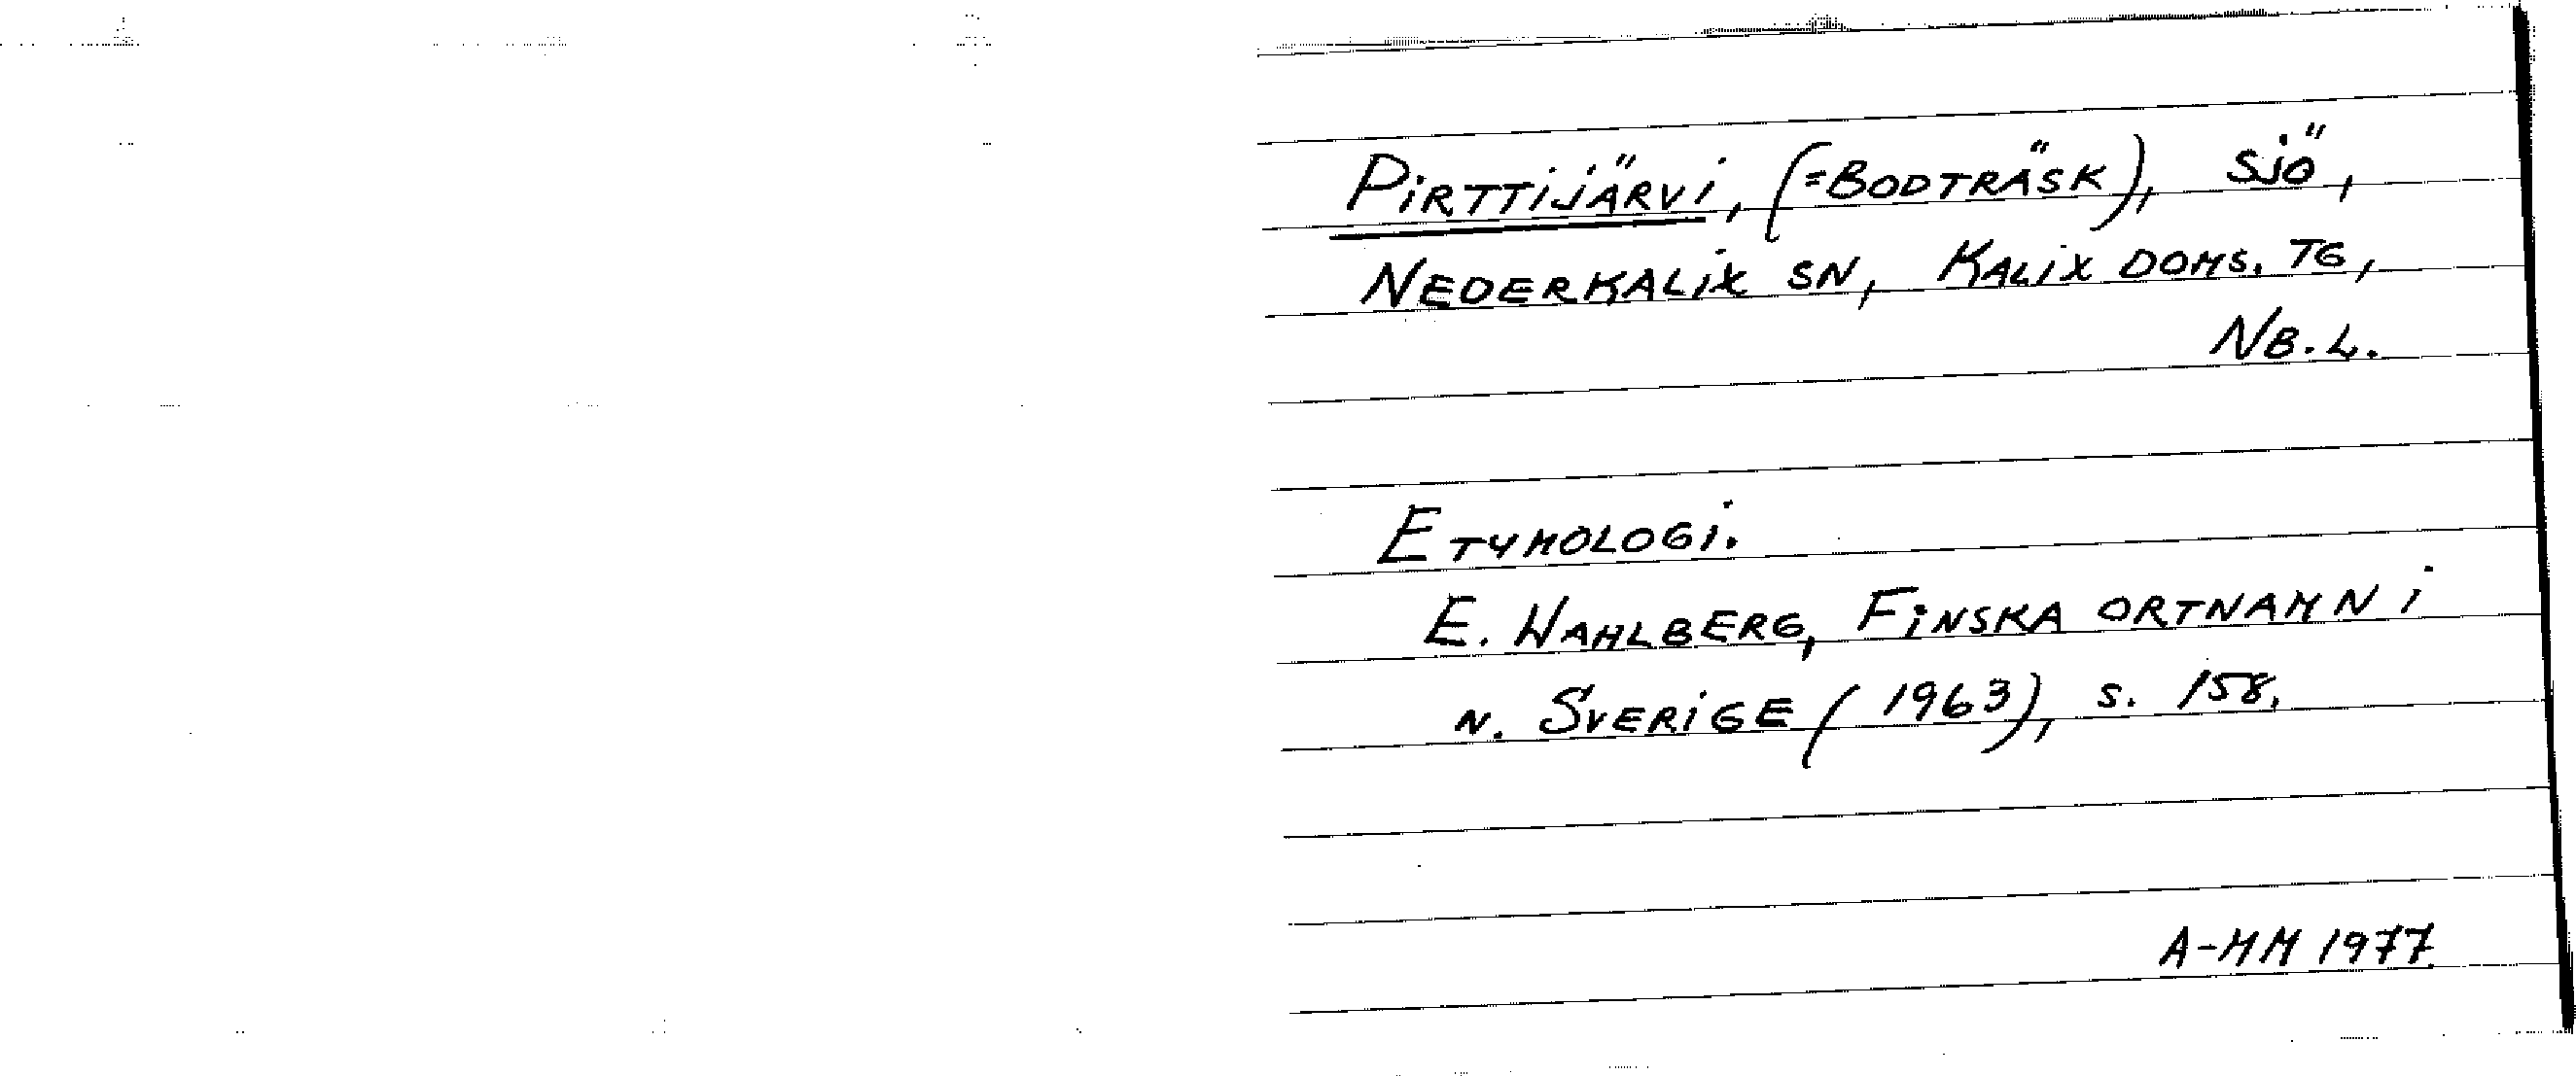 PIRTTIJÄRVI, (=BODTRÄSK), SJÖ,
NEDERKALIX SN, KALIX DOMS. TG,
NB.L.
ETYMOLOGI.
E. WAHLBERG, FINSKA ORTNAMN I
N. SVERIGE (1963), S. 158.
A-MM 1977